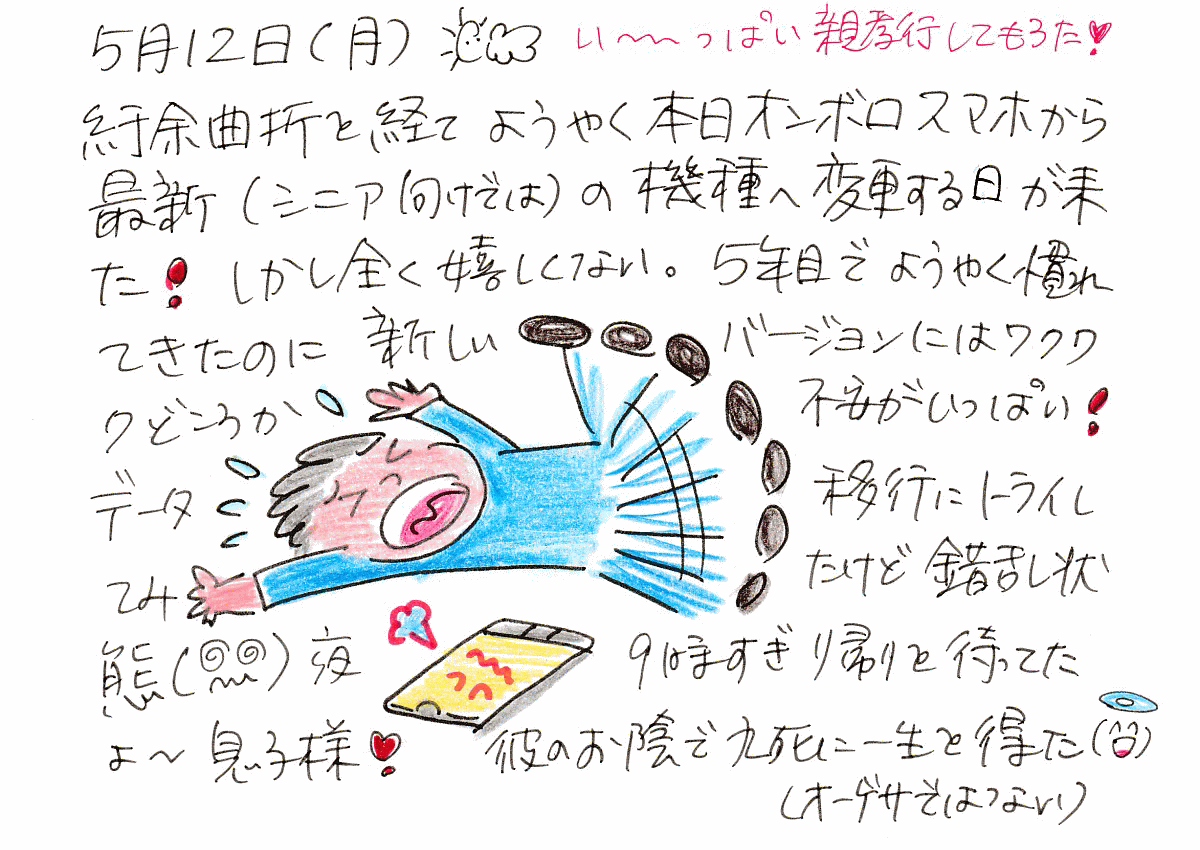 5月12日(月)
い〜〜っぱい親孝行してもろた!
紆余曲折を経てようやく本日オンボロスマホから
最新(シニア向けではの機種へ変更する日が来
た! しかし全く嬉しくない。5年目でようやく慣れ
てきたのに 新しい バージョンにはワクワ
クどころか 不安がいっぱい!
データ 移行にトライし
てみ たけど 錯乱し状
態( ) 夜 9時すぎ 帰りを待ってた
よ〜 息子様! 彼のお陰で九死に一生を得た( )
(オーゲサではない)